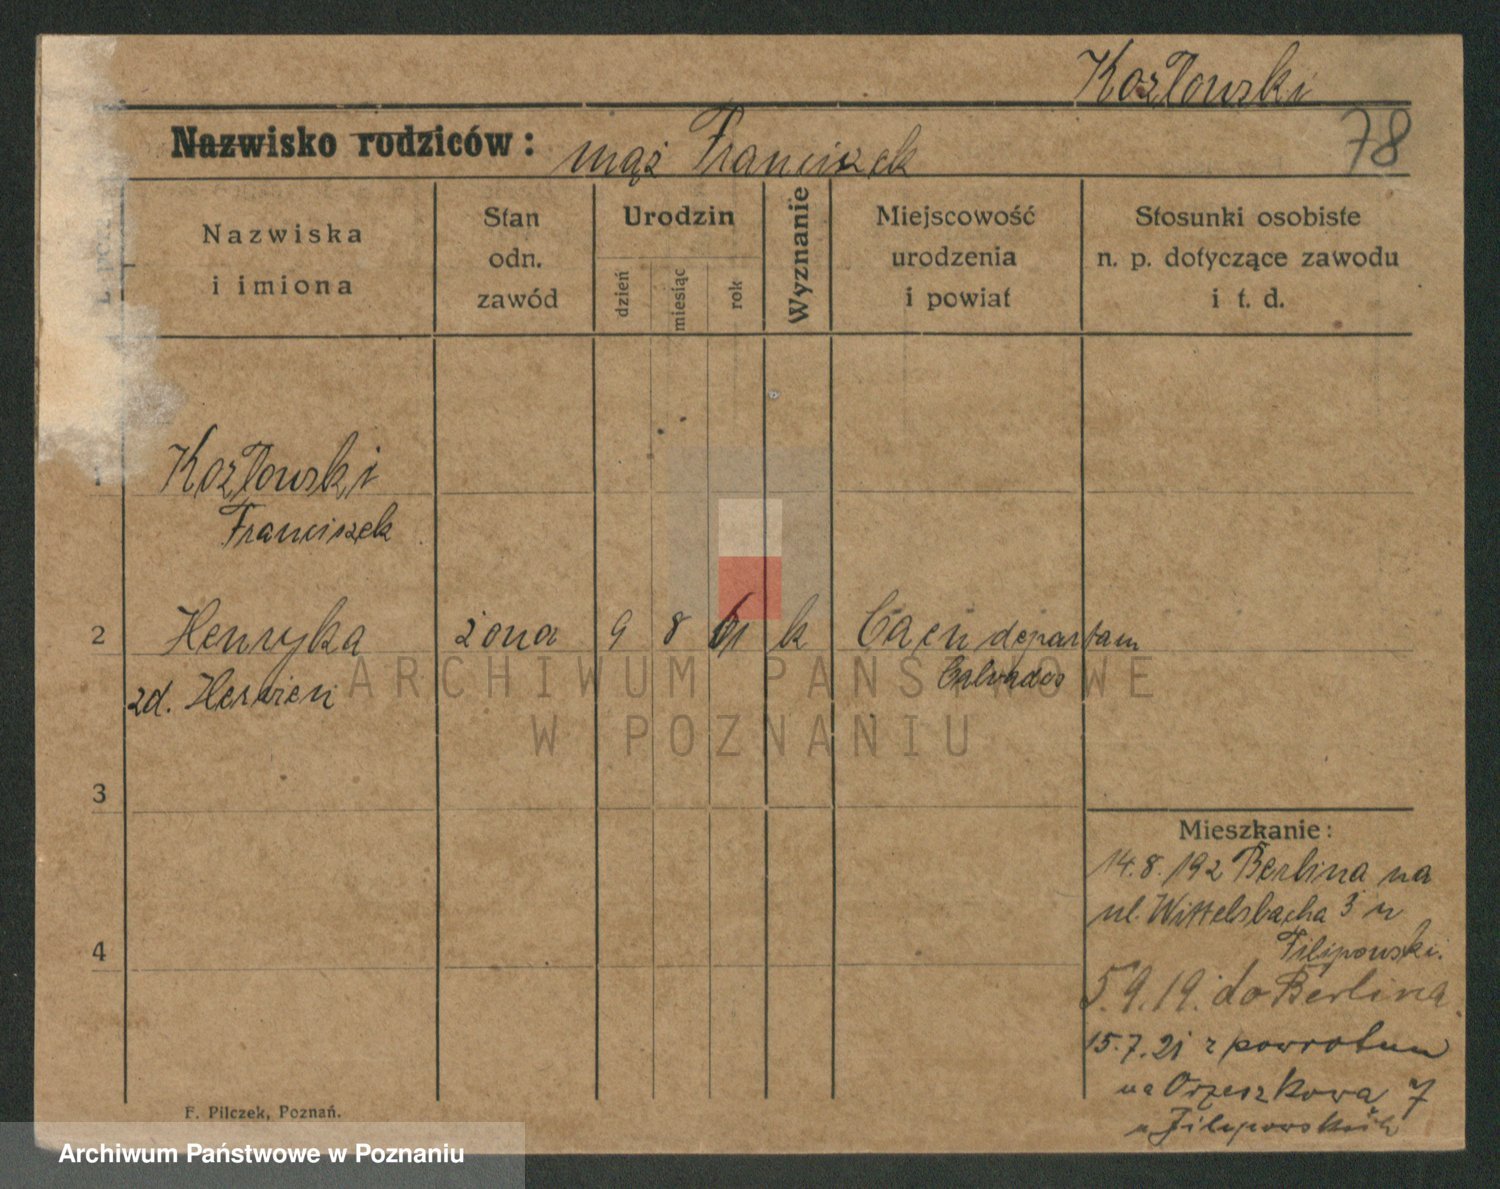 Kozłowski
Nazwisko rodziców: mąż Franciszek
78
Nazwiska
i imiona
Stan
odn.
zawód
Urodzin
dzień
miesiąc
rok
Wyznanie
Miejscowość
urodzenia
i powiat
Stosunki osobiste
n. p. dotyczące zawodu
i t. d.
Kozłowski
Franciszek
2 Henryka żona 9 8 k Caen departam
zd. Calvados
3
4
Mieszkanie:
14.8.192 Berlina na
ul. Wittelsbacha 3 u
Filipowski.
5.9.19. do Berlina
15.7.21 z powrotem
na Orzeszkowa 7
u Filipowskich
F. Pilczek, Poznań.
ARCHIWUM PAŃSTWOWE
W POZNANIU
Archiwum Państwowe w Poznaniu